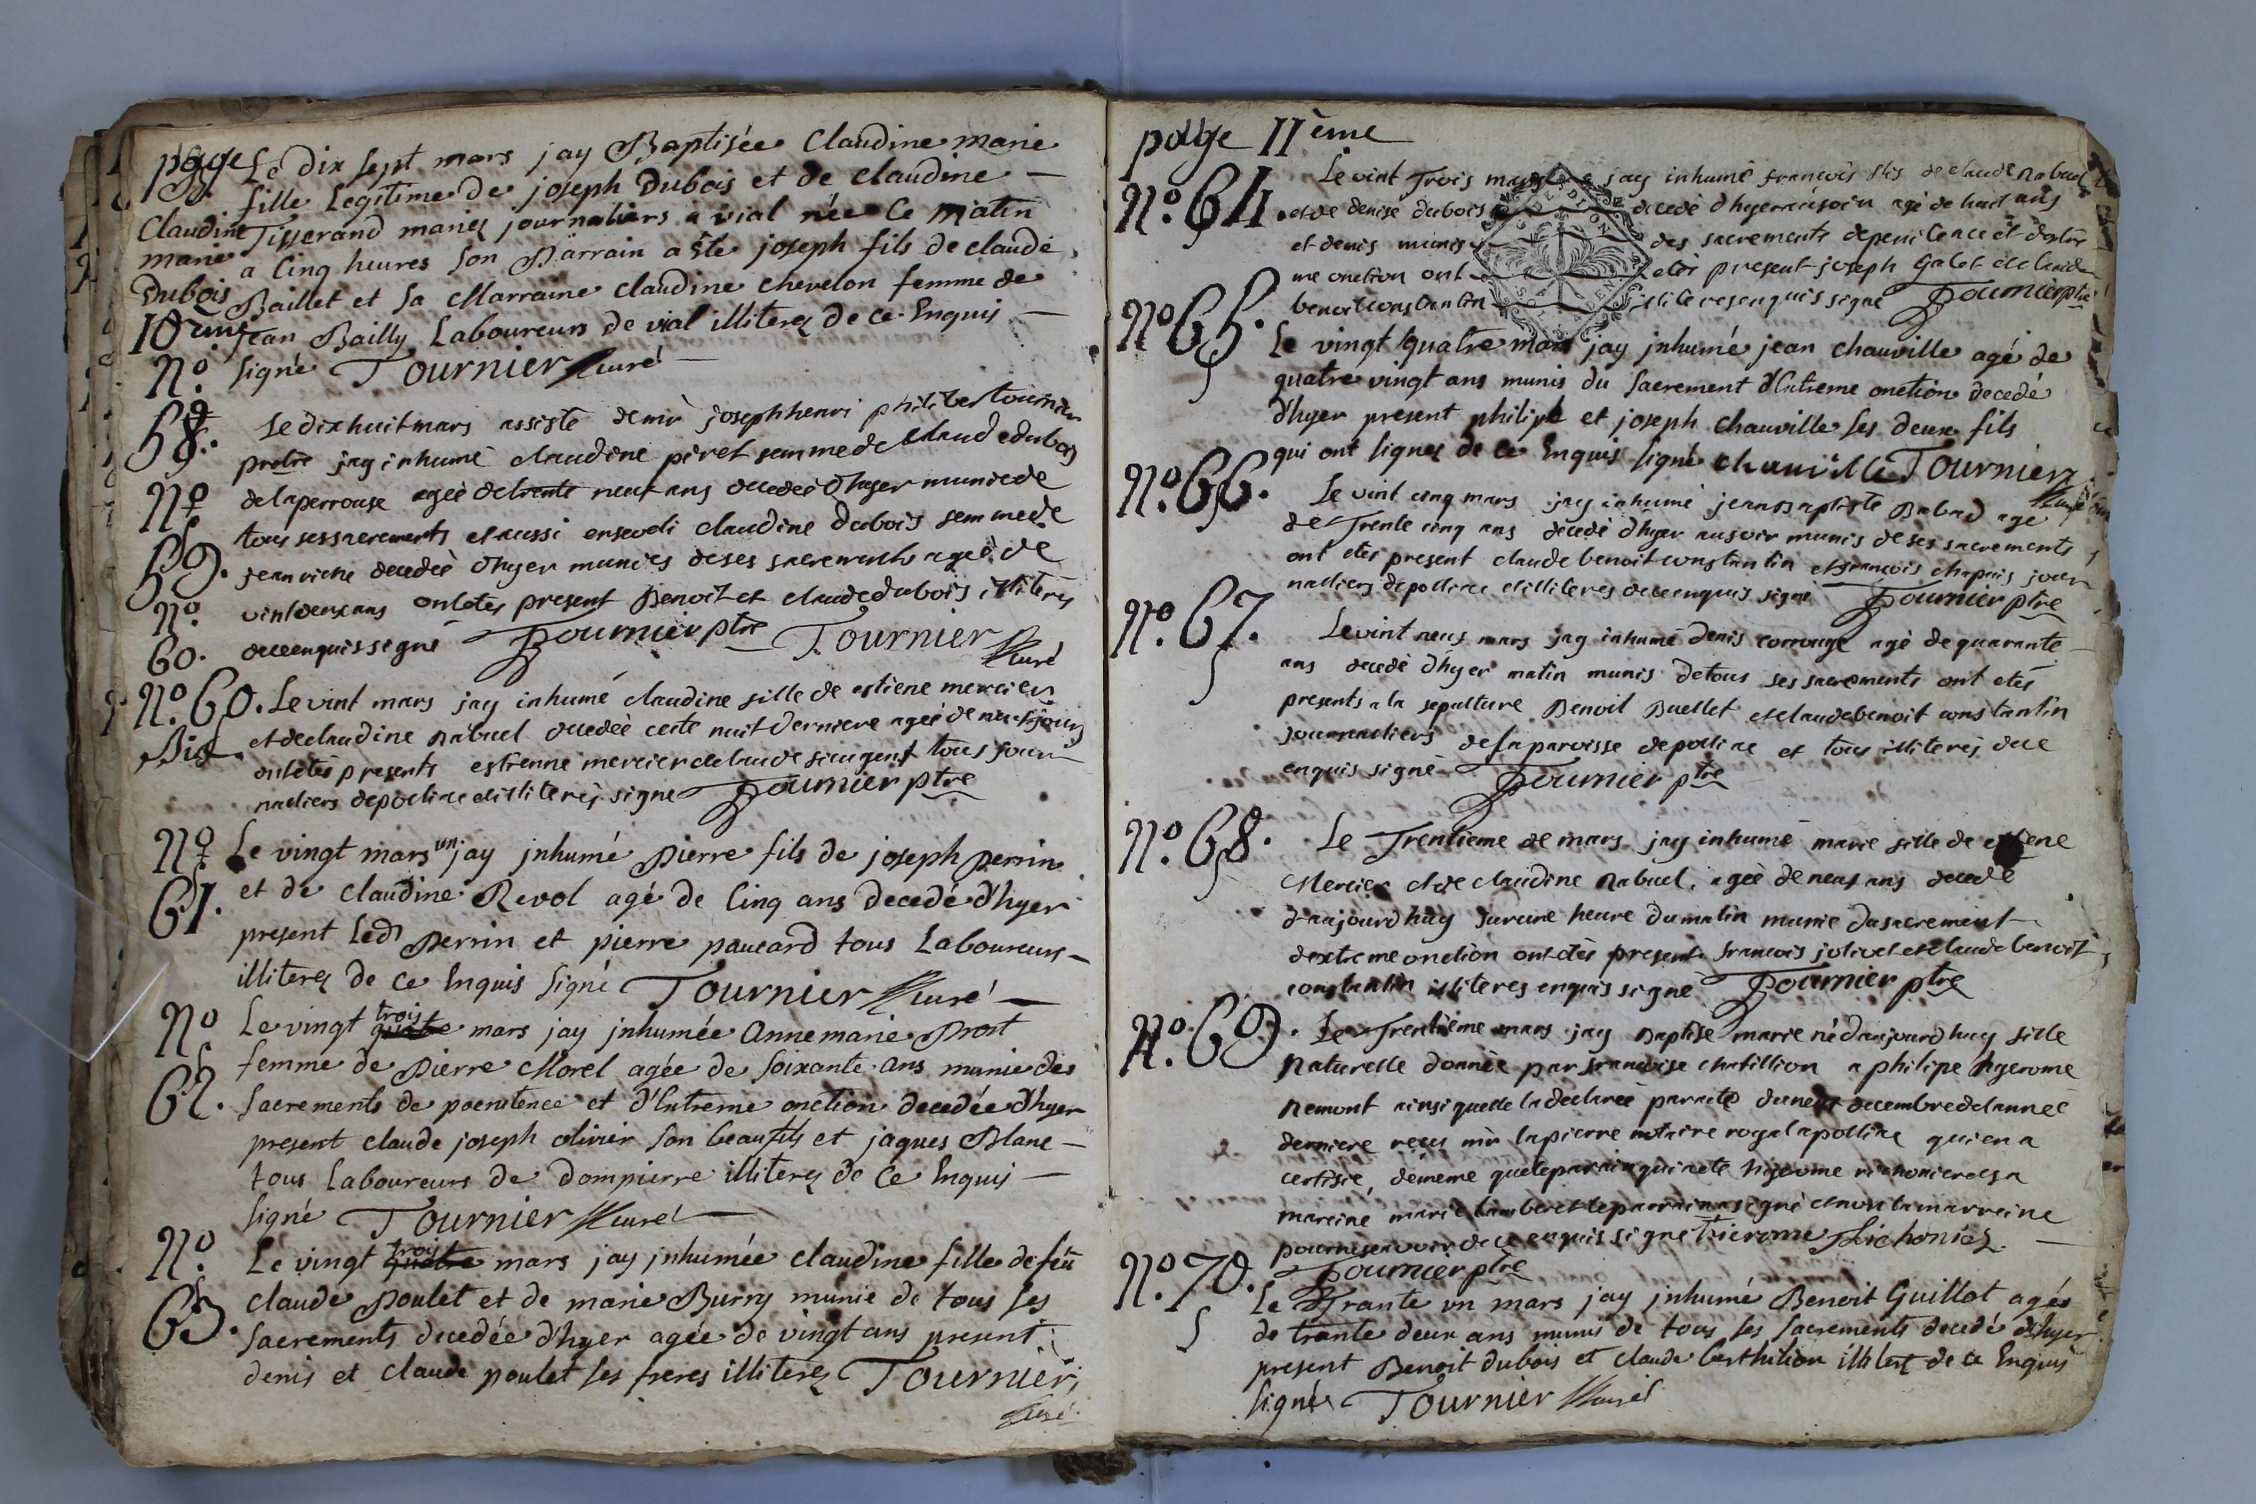 page Le dix sept mars jay Baptisée Claudine marie
fille Legitime de joseph Dubois et de claudine
Claudine Tisserand mariez journaliers a vial née Ce matin
marie a Cinq heures son Parrain a été joseph fils de claude
Dubois Baillet et sa Marraine claudine chevelon femme de
10eme jean Bailly Laboureurs de vial illiterez de ce Enquis
N.o signé Tournier curé
58. Le dix huit mars assisté de mr joseph henri philibes tournier
pretre jay inhumé claudine piret femme de claude dubois
N.o de laperrouse agée de trente neuf ans decedée d'hyer munie de
tous ses sacrements et aussi enseveli claudine dubois femme de
59. jean riche decedée d'hyer munies de ses sacrements agée de
N.o vint deux ans ont etes present Benoit et claude dubois illiteres
60. de ce enquis signé Tournier ptre Tournier
curé
N.o 60. Le vint mars jay inhumé claudine fille de estiene mercier
Bis. et de claudine Rabuel decedée cette nuit derniere agée de neuf jours
ont etes presents estienne mercier claude tous jour-
naliers de polliac et illiterés signé Tournier ptre
N.o Le vingt un mars jay jnhumé Pierre fils de joseph Perrin
61. et de claudine Revol agé de Cinq ans decedé d'hyer
present Led Perrin et pierre paucard tous Laboureurs
illiterez de ce Enquis signé Tournier curé
N.o Le vingt trois quatre mars jay jnhumée Anne marie Prost
femme de Pierre Morel agée de soixante ans munie des
62. sacrements de poenitence et d'Extreme onction decedée d'hyer
present claude joseph olivier son beaufils et jaques Blanc
tous Laboureurs de dompierre illiterez de Ce Enquis
signé Tournier curé
N.o Le vingt trois quatre mars jay jnhumée claudine fille de feu
claude Poulet et de marie Burry munie de tous ses
63. sacrements decedée d'hyer agée de vingt ans present
denis et claude poulet ses freres illiterez Tournier
curé
page 11ème
N.o 64. Le vint Trois mars jay inhumé francois fils de claude Rabuel
et de denise dubois decedé d'hyer au soir agé de huit ans
et demis munis des sacrements de penitence et d'extre
me onction ont etés present joseph Galet et claude
benoit constantin illiteres enquis signé Tournier ptre
N.o 65. Le vingt quatre mars jay jnhumé jean chauville agé de
quatre vingt ans munis du sacrement d'Extreme onction decedé
d'hyer present philipe et joseph chauville ses deux fils
qui ont signez de ce Enquis signé chauville Tournier
curé
N.o 66. Le vint cinq mars jay inhumé jean Baptiste Babad agé
de Trente cinq ans decedé d'hyer au soir munis de ses sacrements
ont etés present claude benoit constantin et francois chapuis jour-
naliers de polliac et illiteres de ce enquis signé Tournier ptre
N.o 67. Le vint neuf mars jay inhumé denis corrouge agé de quarante
ans decedé d'hyer matin munis de tous ses sacrements ont etés
presents a la sepulture Benoit Buellet et claude benoit constantin
journaliers de la paroisse de polliac et tous illiterés de ce
enquis signé Tournier ptre
N.o 68. Le Trentieme de mars jay inhumé marie fille de estiene
Mercier et de claudine Rabuel, agée de neuf ans decede
d'aujourdhuy sur une heure du matin munie du sacrement
d'extreme onction ont etés present francois jolivet et claude benoit
constantin illiteres enquis signé Tournier ptre
N.o 69. Le Trentième mars jay Baptisé marie né d'aujourdhuy fille
Naturelle donnée par francoise chatillion a philipe hyerome
Remont ainsi que de la declarée par acte du neuf decembre de lannée
derniere reçu mr lapierre notaire royal a polliac qui en a
certifié, de meme que le parrain qui a eté hyerome richonier et sa
mareine marie lambert le parrain a signé et non la marreine
pour ne savoir de ce enquis signé hierome Richonier
Tournier ptre
N.o 70. Le Trante un mars jay jnhumé Benoit Guillot agés
de trante deux ans munis de tous ses sacrements decedé d'hyer
present Benoit dubois et claude berthilion illiterez de ce Enquis
signé Tournier curé